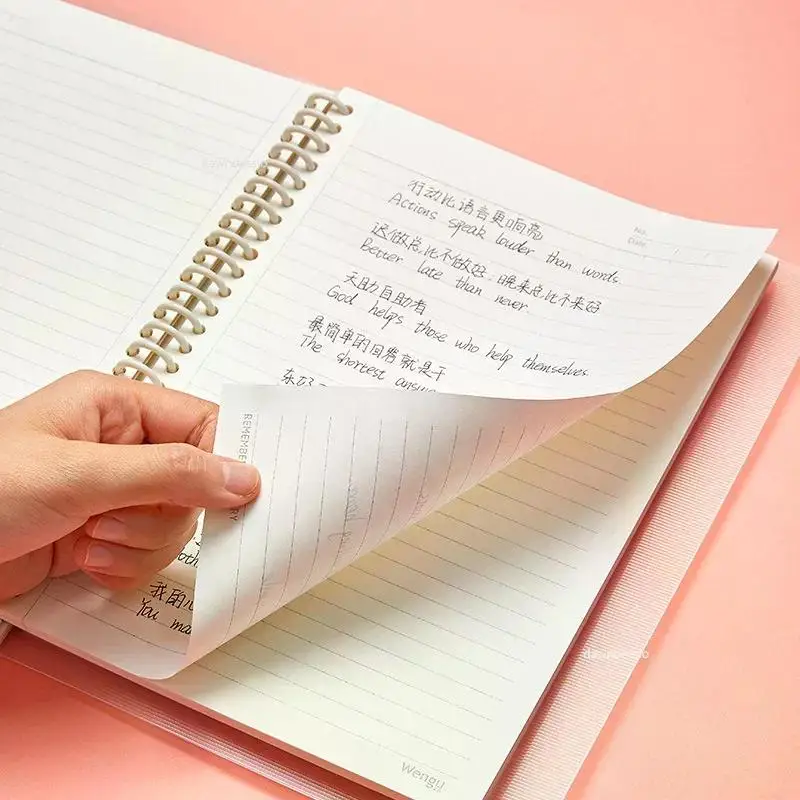 No.
Date
行动比语言更响亮
Actions speak louder than words.
迟做总比不做好,晚来总比不来好
Better late than never.
天助自助者
God helps those who help themselves
最简单的回答就是干
The shortest answer
我的
You
REMEMBER
Wengu